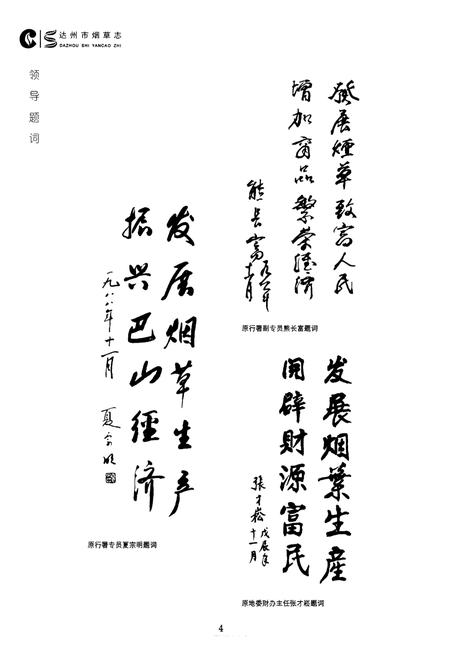 达州市烟草志
DAZHOU SHI YANCAO ZHI
领导题词
發展煙草致富人民
增加商品繁荣经济
熊长富
原行署副专员熊长富题词
发展烟草生产
振兴巴山經济
一九八八年十一月
夏宗明
原行署专员夏宗明题词
发展烟葉生産
開辟財源富民
張才崧
戊辰年
十一月
4